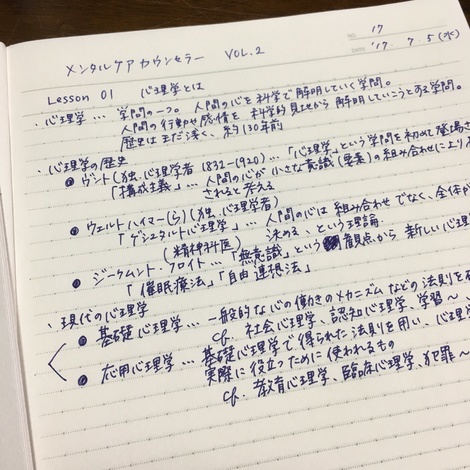 17
メンタルケア カウンセラー VOL.2
DATE '17 . 7 . 5 (水)
Lesson 01 心理学とは
・心理学 … 学問の一つ。人間の心を科学で解明していく学問。
人間の行動や感情を科学的見地から解明していこうとする学問。
歴史はまだ浅く、約130年前
・心理学の歴史
● ヴント(独.心理学者 1832-1920) …「心理学」という学問を初めて登場さ
「構成主義」… 人間の心が小さな意識(要素)の組み合わせにより
されると考える
● ウェルトハイマー(ら)(独.心理学者)
「ゲシュタルト心理学」… 人間の心は組み合わせでなく、全体が
決める、という理論.
(精神科医)
● ジークムント・フロイト …「無意識」という観点から新しい心理
「催眠療法」「自由連想法」
・現代の心理学
● 基礎心理学 … 一般的な心の働きのメカニズムなどの法則を
cf. 社会心理学、認知心理学、学習～
● 応用心理学 … 基礎心理学で得られた法則を用い、心理学
実際に役立つために使われるもの
cf. 教育心理学、臨床心理学、犯罪～